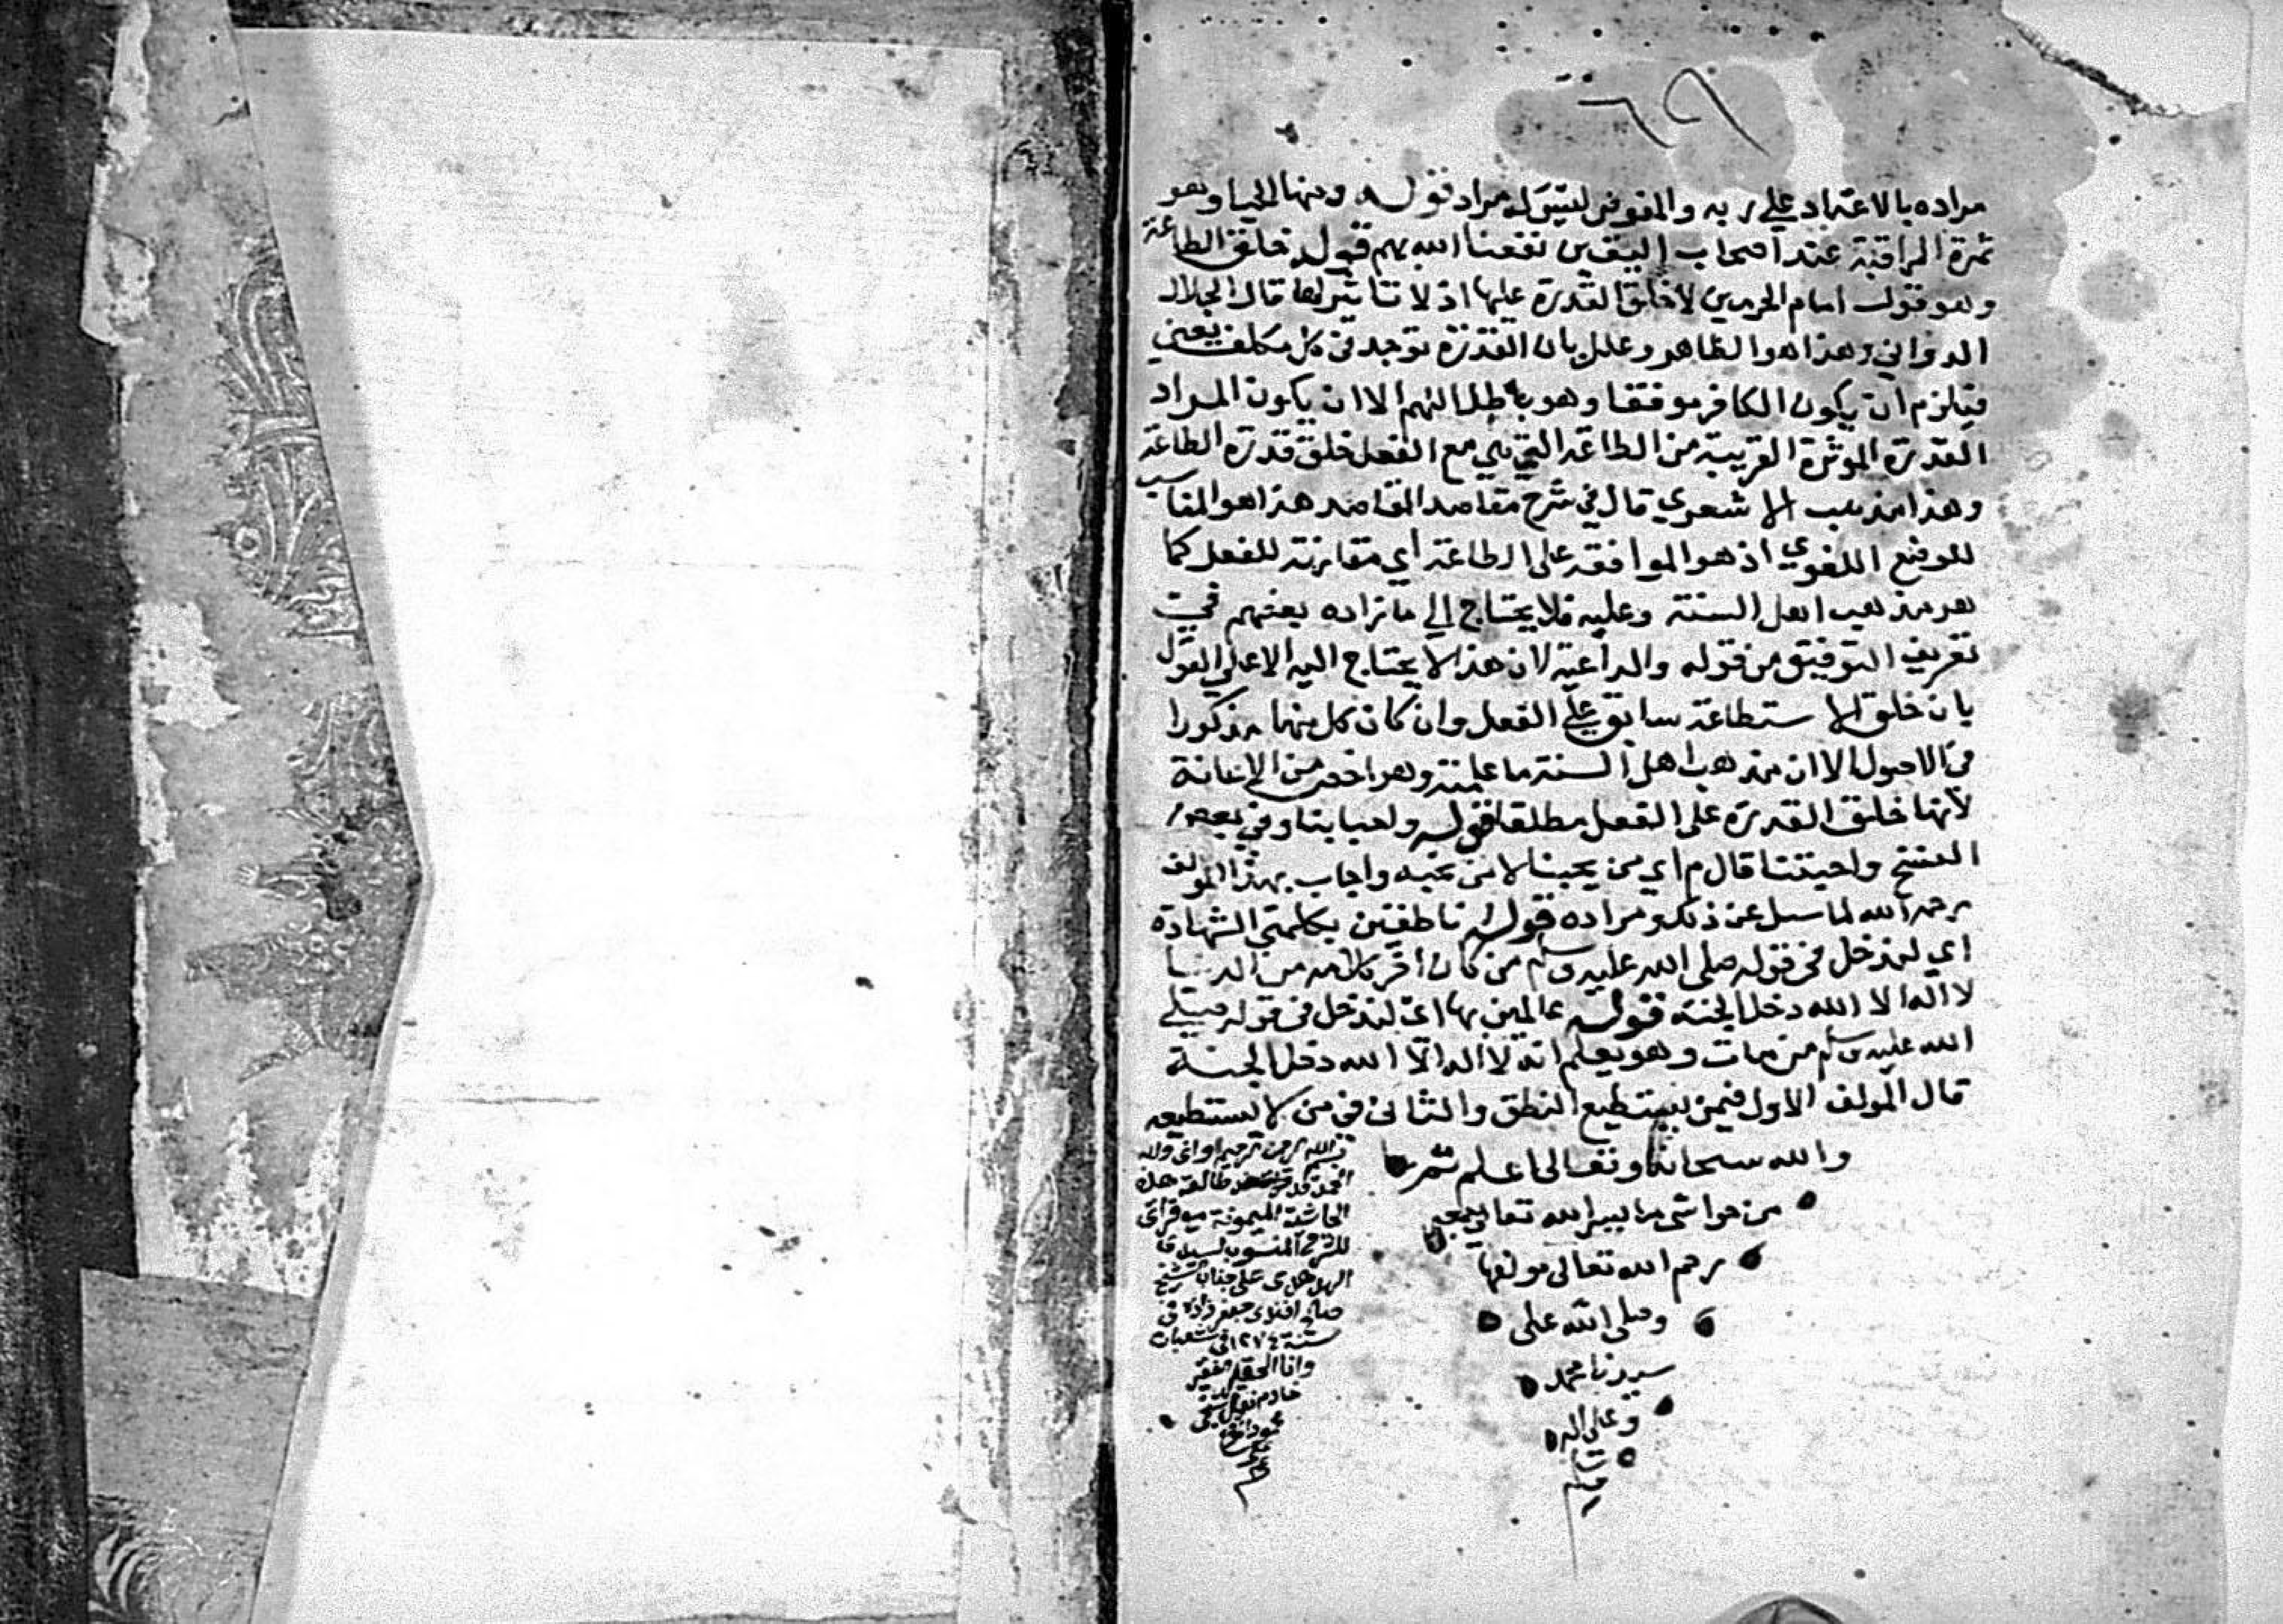 ٦٩
مراده بالاعتماد على ربه والمفوض ليس له مراد قوله ومنها الحيا وهو
ثمرة المراقبة عند اصحاب اليقين نفعنا الله بهم قوله خلق الطاعة
وهو قول امام الحرمين لا خلق القدرة عليها اذ لا تاثير لها قال الجلال
الدواني وهذا هو الظاهر وعلل بان القدرة توجد في كل مكلف يعني
فيلزم ان يكون الكافر موفقا وهو باطل اللهم الا ان يكون المراد
القدرة الموثرة القريبة من الطاعة التي هي مع الفعل خلق قدرة الطاعة
وهذا مذهب الاشعري قال في شرح مقاصد المقاصد هذا هو المناسب
للوضع اللغوي اذ هو الموافقة على الطاعة اي مقارنة للفعل كما
هو مذهب اهل السنة وعليه فلا يحتاج الى ما زاده بعضهم في
تعريف التوفيق من قوله والداعية لان هذا لا يحتاج اليه الا على القول
بان خلق الاستطاعة سابق على الفعل وان كان كل منهما مذكورا
في الاصول الا ان مذهب اهل السنة ما علمته وهو اخص من الاعانة
لانها خلق القدرة على الفعل مطلقا قوله واحبابنا وفي بعض
النسخ واحبتنا قال م اي من يحبنا لا من نحبه واجاب بهذا المولف
رحمه الله لما سيل عن ذلك ومراده قوله ناطقين بكلمتي الشهادة
اي لندخل في قوله صلى الله عليه وسلم من كان اخر كلامه من الدنيا
لا اله الا الله دخل الجنة قوله عالمين بها اي لندخل في قوله صلى
الله عليه وسلم من مات وهو يعلم انه لا اله الا الله دخل الجنة
قال المولف الاول فيمن يستطيع النطق والثاني في من لا يستطيعه
والله سبحانه وتعالى اعلم
من حواشي ما يسر الله تعالى
رحم الله تعالى مولفها
وصلى الله على
سيدنا محمد
وعلى اله
بسم الله الرحمن الرحيم
الحمد لله قد طالعت هذه
الحاشية الميمونة
للشرح المنسوب لسيدي
الهدهدي على جناب الشيخ
صالح افندي جعفر زاده في
سنة ١٢٧٤ في شعبان
وانا الفقير
خادم
محمود